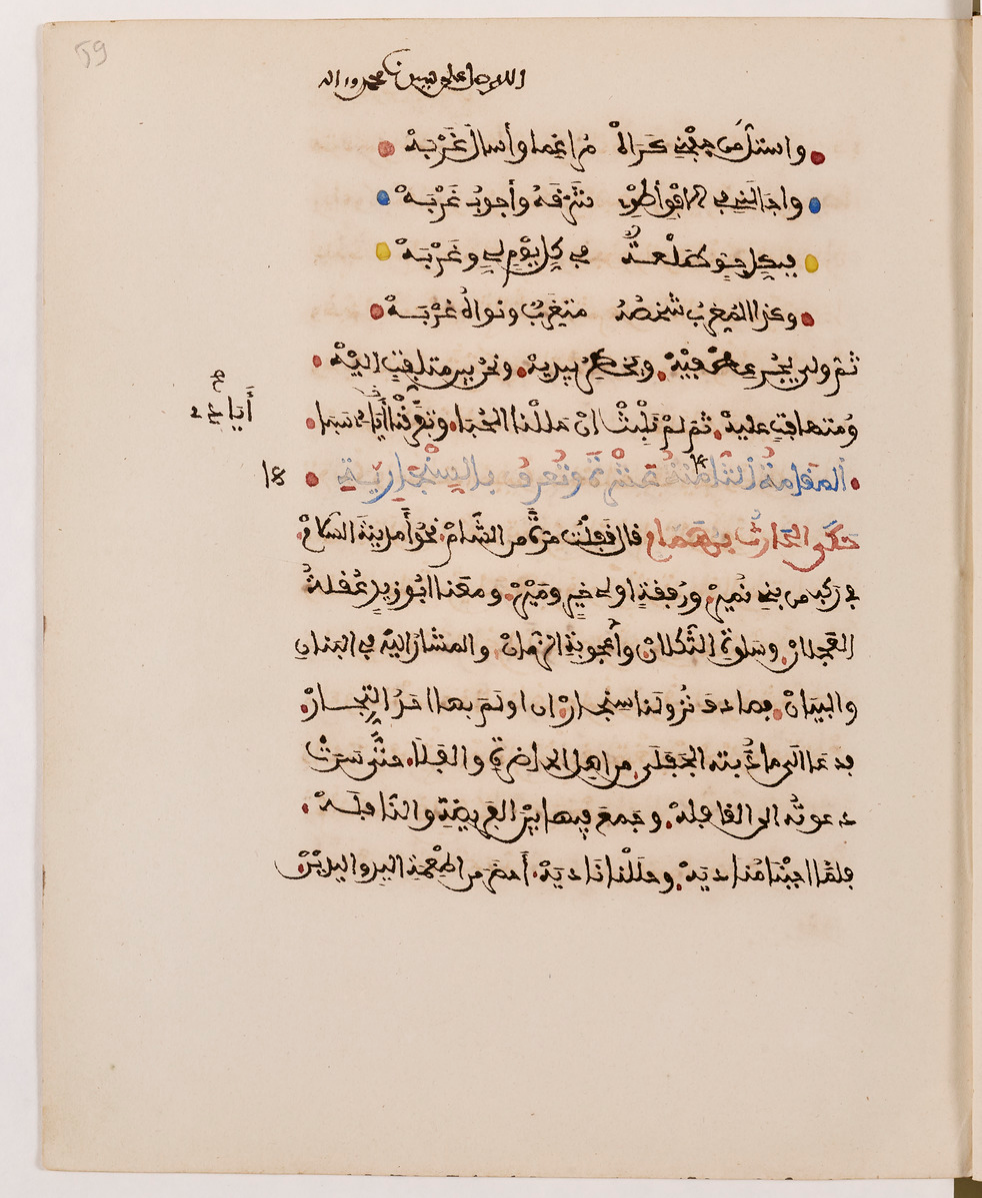 59
اللهم صل على نبينا محمد وءاله
واستلّ من جفني كراهْ مراغما وأسال غَرْبهْ
واجالني في الافق أطوي شرقه وأجوب غَرْبهْ
فبكل جوّ طلعةٌ في كل يوم لي وغَرْبهْ
وكذا المغرب شخصُهُ متغرّبٌ ونواه غَرْبهْ
ثم ولى يجرّ عطفيهْ ويخطر بيديهْ ونحن بين متلفت اليهْ
ومتهافت عليهْ ثم لم نلبثْ ان حللنا الحُبا وتفرقنا أيادي سبا
أيادي
المقامة الثامنة عشرة وتعرف بالسنجارية
18
حكى الحارث بن همام قال قفلت مرة من الشام نحو مدينة السلام
في ركب من بني نمير ورفقة اولي خير ومير ومعنا ابو زيد عُقلةُ
العجلان وسلوة الثكلان وأعجوبة الزمان والمشار اليه في البنان
والبيان فصادف نزولنا سنجار ان اولم بها احد التجار
فدعا الى مأدبته الجفلى من اهل الحاضرة والفلا حتى سرت
دعوته الى القافلهْ وجمع فيها بين الفريضة والنافلهْ
فلما اجبنا مناديهْ وحللنا ناديهْ أحضر من اطعمة اليد واليدين